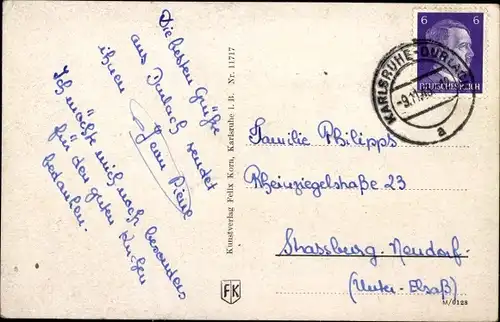 Die besten Grüße
aus Durlach sendet
ihnen
Ich möchte mich noch besonders
für den guten Kuchen
bedanken.
Kunstverlag Felix Korn, Karlsruhe i. B. Nr. 11717
6 6
DEUTSCHES REICH
KARLSRUHE-DURLACH
a
Familie Philipps
Rheinziegelstraße 23
Strassburg-Neudorf-
(Unter-Elsaß)
FK
M/0128